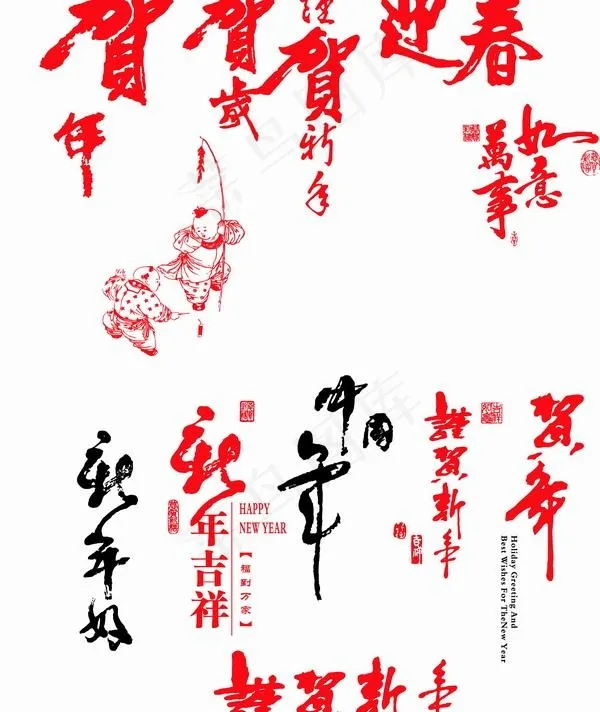 賀年
賀歲
謹賀新年
迎春
萬事如意
新年好
新年吉祥
HAPPY
NEW YEAR
【福到万家】
中国年
謹賀新年
賀年
Holiday Greeting And
Best Wishes For TheNew Year
謹賀新年